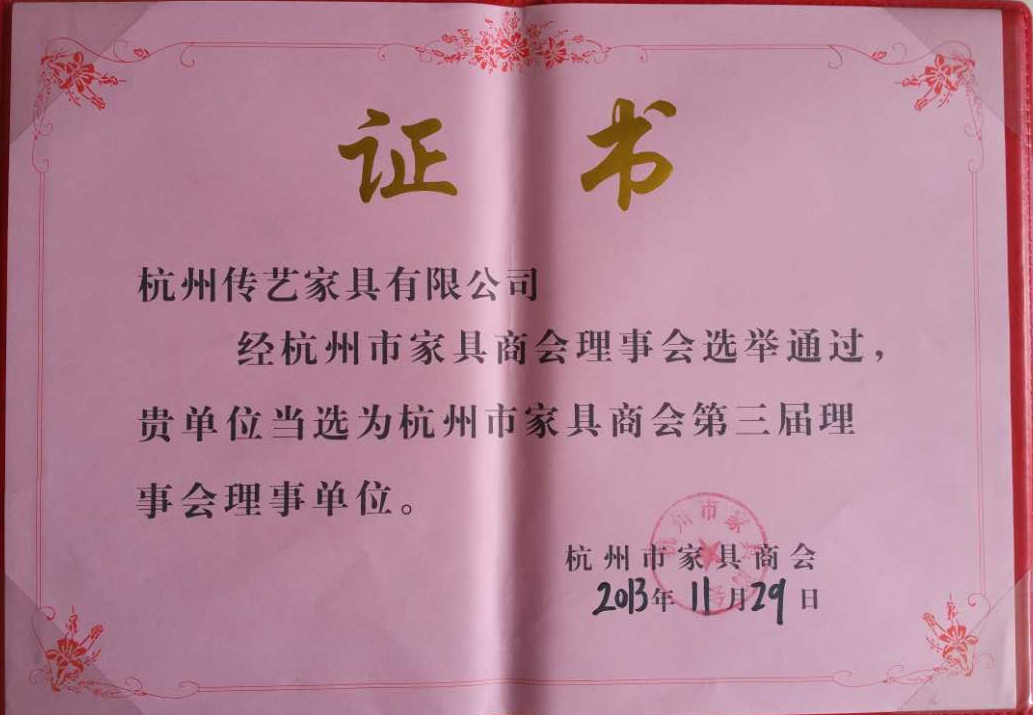 证书
杭州传艺家具有限公司
经杭州市家具商会理事会选举通过，
贵单位当选为杭州市家具商会第三届理
事会理事单位。
杭州市家具商会
2013年11月29日
杭州市家具商会